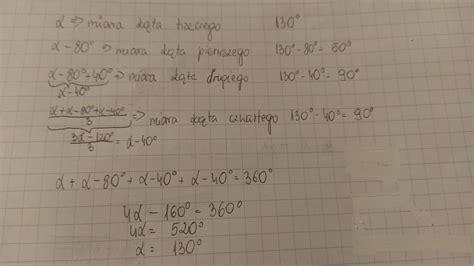 α ⇒ miara kąta trzeciego 130°
α - 80° ⇒ miara kąta pierwszego 130° - 80° = 50°
α - 80° + 40° ⇒ miara kąta drugiego 130° - 40° = 90°
α - 40°
α + α - 80° + α - 40° / 3 ⇒ miara kąta czwartego 130° - 40° = 90°
3α - 120° / 3 = α - 40°
α + α - 80° + α - 40° + α - 40° = 360°
4α - 160° = 360°
4α = 520°
α = 130°